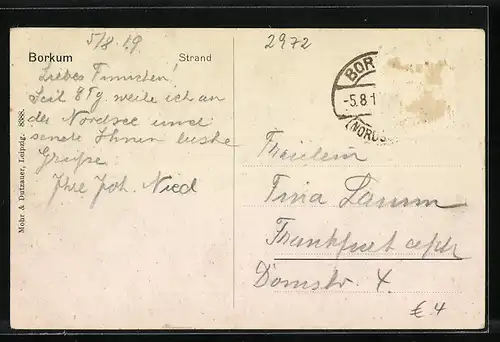 5/8.19.
2972
Borkum Strand
Liebes Tinnchen!
Seit 8 Tg. weile ich an
der Nordsee und
sende Ihnen beste
Grüße
Ihre Joh. Nied
Mohr & Dutzauer, Leipzig. 8388.
BOR
-5.8.1
(NORDS
Fräulein
Tina Lamm
Frankfurt a/M
Domstr. 4.
€ 4